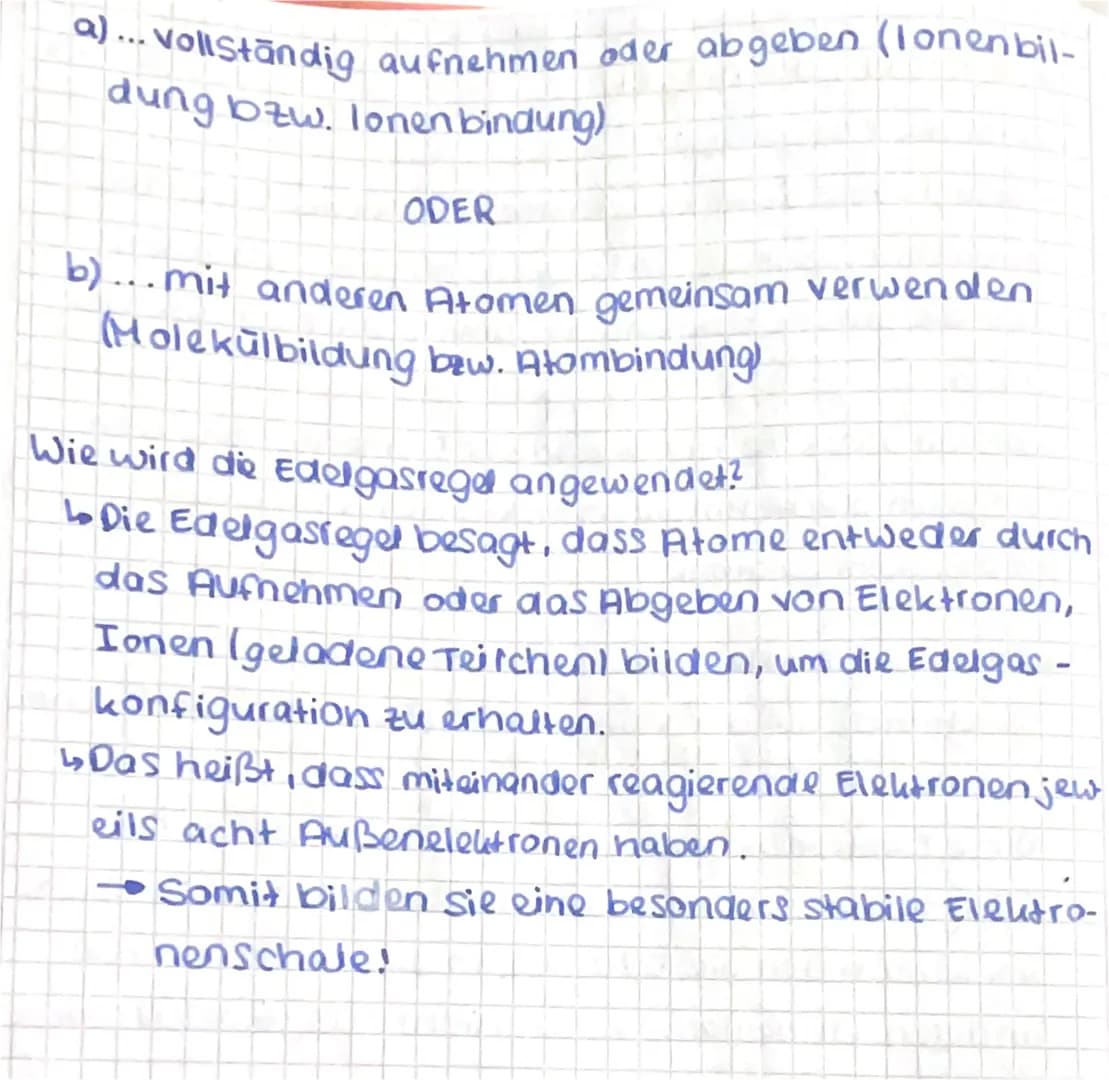 a) ... vollständig aufnehmen oder abgeben (Ionenbil-
dung bzw. Ionenbindung)
ODER
b) ... mit anderen Atomen gemeinsam verwenden
(Molekülbildung bzw. Atombindung)
Wie wird die Edelgasregel angewendet?
↳ Die Edelgasregel besagt, dass Atome entweder durch
das Aufnehmen oder das Abgeben von Elektronen,
Ionen (geladene Teilchen) bilden, um die Edelgas-
konfiguration zu erhalten.
↳ Das heißt, dass miteinander reagierende Elektronen jew
eils acht Außenelektronen haben.
→ Somit bilden sie eine besonders stabile Elektro-
nenschale!